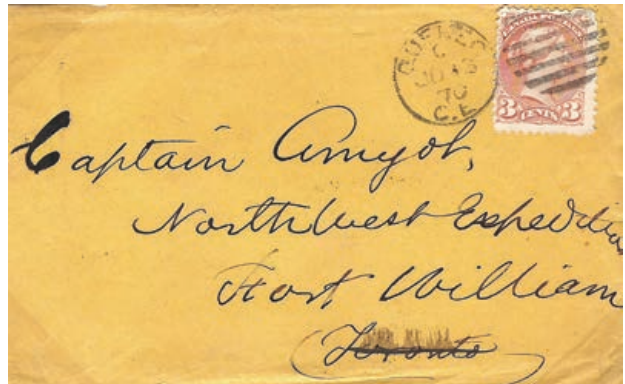 QUEBEC
C
70
C.E.
CANADA POSTAGE
3 CENTS 3
Captain Amyot,
North West Expedition
Fort William
Toronto